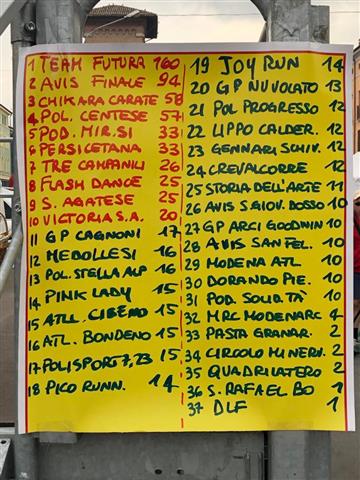 1 TEAM FUTURA 160
2 AVIS FINALE 94
3 CHIKARA CARATE 58
4 POL. CENTESE 57
5 POD. MIR.SI 33
6 PERSICETANA 33
7 TRE CAMPANILI 26
8 FLASH DANCE 25
9 S. AGATESE 25
10 VICTORIA S.A. 20
11 GP CAGNONI 17
12 MEDOLLESI 16
13 POL. STELLA ALP 16
14 PINK LADY 15
15 ATLL. CIBENO 15
16 ATL. BONDENO 15
17 POLISPORT 7,23 15
18 PICO RUNN. 14
19 JOY RUN 14
20 GP NUVOLATO 13
21 POL PROGRESSO 12
22 LIPPO CALDER. 12
23 GENNARI SCHIV. 12
24 CREVALCORRE 12
25 STORIA DELL'ARTE 11
26 AVIS S.GIOV. DOSSO 10
27 GP ARCI GOODWIN 10
28 AVIS SAN FEL. 10
29 MODENA ATL 10
30 DORANDO PIE. 10
31 POD. SOLID.TÀ 10
32 MRC MODENARC 4
33 PASTA GRANAR. 2
34 CIRCOLO MINERV. 2
35 QUADRILATERO 2
36 S. RAFAEL BO 1
37 DLF 1